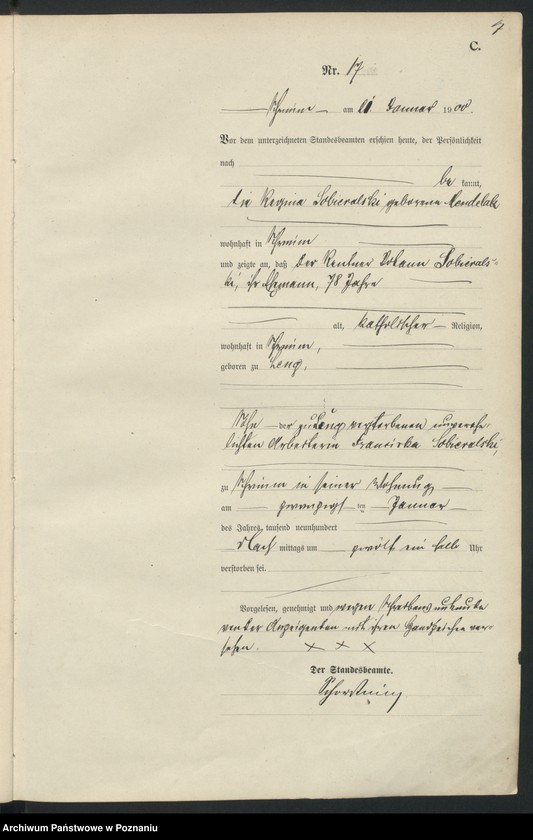 4
C.
Nr. 17
Schrimm am 21. Januar 1900.
Vor dem unterzeichneten Standesbeamten erschien heute, der Persönlichkeit
nach
be kannt,
die Regina Sobieralski geborene
wohnhaft in Schrimm
und zeigte an, daß der Rentner Johann Sobierals-
ki, ihr Ehemann, 78 Jahre
alt, katholischer Religion,
wohnhaft in Schrimm,
geboren zu Leng,
Sohn der zu Leng verstorbenen unverehe-
lichten Arbeiterin Franziska Sobieralski,
zu Schrimm in seiner Wohnung
am zwanzigsten Januar
des Jahres, tausend neunhundert
Nach mittags um zwölf ein halb Uhr
verstorben sei.
Vorgelesen, genehmigt und wegen Schreibensunkunde
von der Anzeigenden mit ihren Handzeichen ver-
sehen. + + +
Der Standesbeamte.
Archiwum Państwowe w Poznaniu